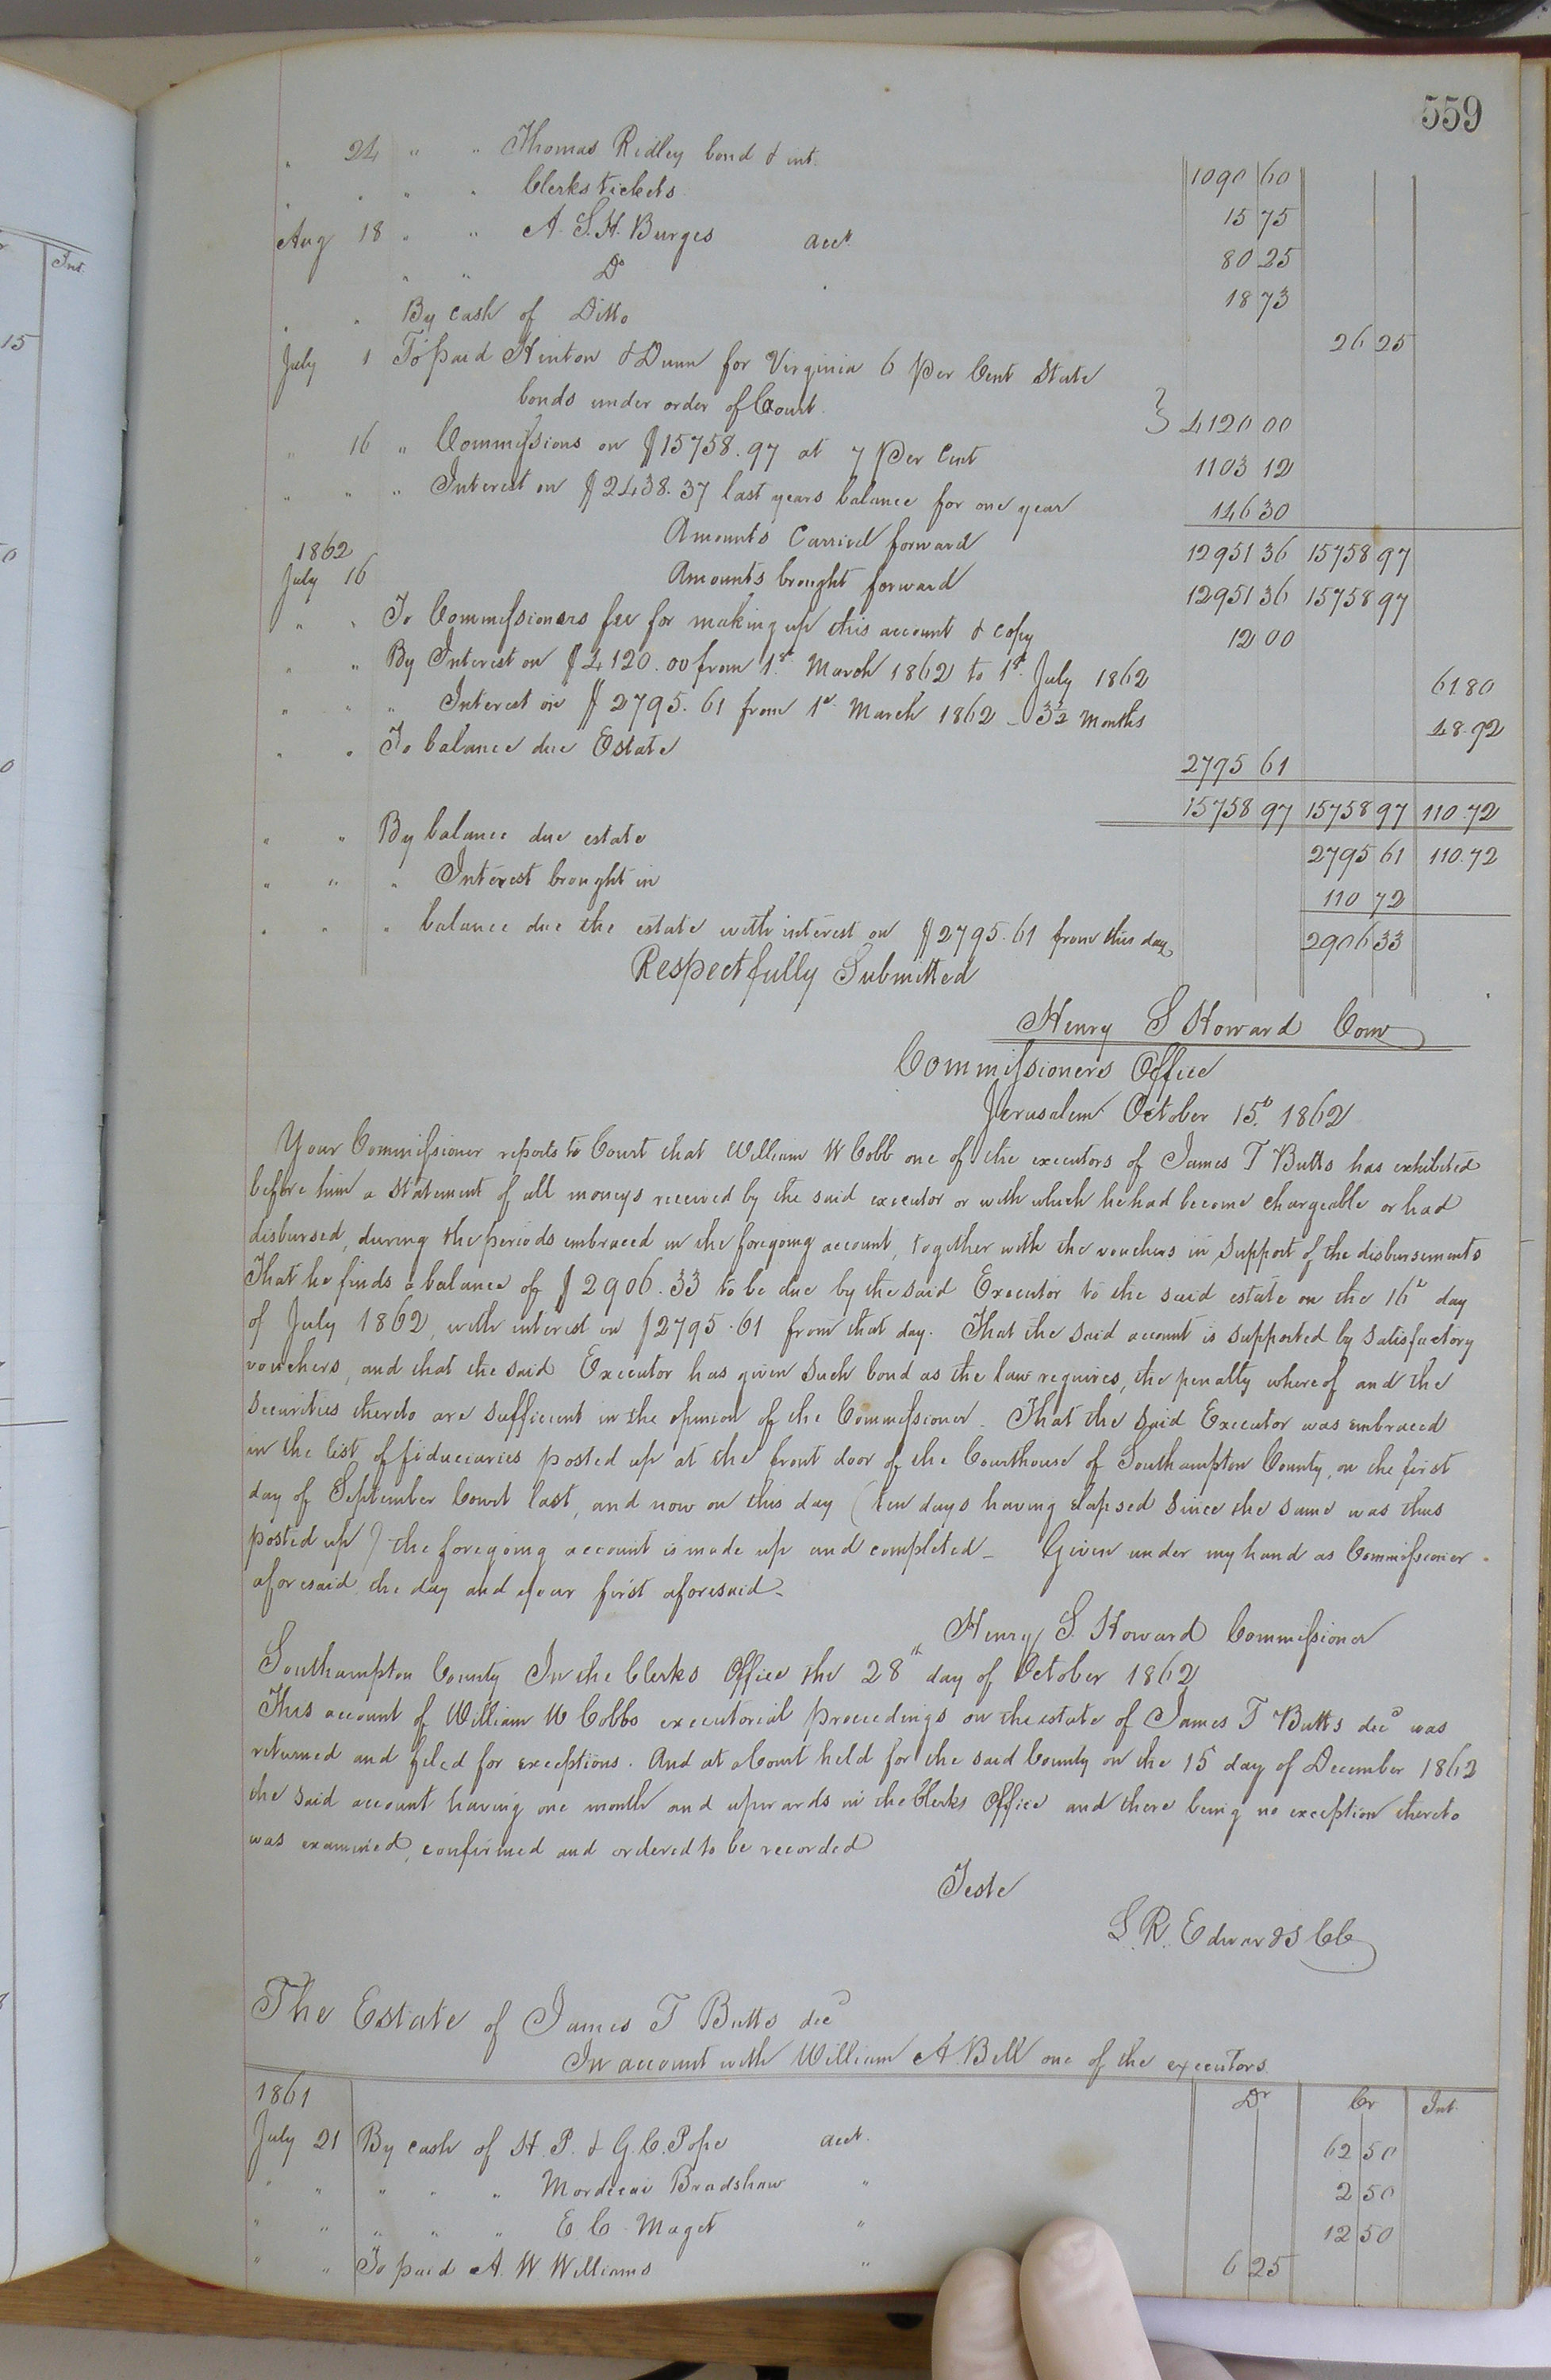 559
" 24 " " Thomas Ridley bond & int. 1090 60
" " " " Clerks tickets 15 75
Aug 18 " " A. S. H. Burges acct 80 25
" " Do 18 73
" " By cash of Ditto 26 25
July 1 To paid Hinton & Dunn for Virginia 6 Per Cent State
bonds under order of Court. } 4120 00
" 16 " Commissions on $15758.97 at 7 Per Cent 1103 12
" " " Interest on $2438.37 last years balance for one year 146 30
Amounts Carried forward 12951 36 15758 97
1862
July 16 Amounts brought forward 12951 36 15758 97
" " To Commissioners fee for making up this account & copy 12 00
" " By Interest on $4120.00 from 1st March 1862 to 1st July 1862 61.80
" " " Interest on $2795.61 from 1st March 1862 - 3½ Months 48.92
" " To balance due Estate 2795 61
15758 97 15758 97 110.72
" " By balance due estate 2795 61 110.72
" " " Interest brought in 110 72
" " " balance due the estate with interest on $2795.61 from this day 2906 33
Respectfully Submitted
Henry S Howard Com
Commissioners Office
Jerusalem October 15th 1862
Your Commissioner reports to Court that William W Cobb one of the executors of James T Butts has exhibited
before him a statement of all moneys received by the said executor or with which he had become chargeable or had
disbursed, during the periods embraced in the foregoing account, together with the vouchers in support of the disbursements
That he finds a balance of $2906.33 to be due by the said Executor to the said estate on the 16th day
of July 1862, with interest on $2795.61 from that day. That the said account is supported by satisfactory
vouchers, and that the said Executor has given such bond as the law requires, the penalty whereof and the
securities thereto are sufficient in the opinion of the Commissioner. That the said Executor was embraced
in the list of fiduciaries posted up at the front door of the Courthouse of Southampton County, on the first
day of September Court last, and now on this day (ten days having elapsed since the same was thus
posted up) the foregoing account is made up and completed - Given under my hand as Commissioner
aforesaid, the day and year first aforesaid -
Henry S. Howard Commissioner
Southampton County In the Clerks Office the 28th day of October 1862
This account of William W Cobbs executorial proceedings on the estate of James T Butts decd was
returned and filed for exceptions. And at a Court held for the said County on the 15 day of December 1862
the said account having one month and upwards in the Clerks Office and there being no exception thereto
was examined, confirmed and ordered to be recorded
Teste
L. R. Edwards CC
The Estate of James T Butts decd
In account with William A. Bell one of the executors.
1861 Dr Cr Int.
July 21 By cash of H. P. & G. C. Pope acct. 62 50
" " " " " Mordecai Bradshaw " 2 50
" " " " " E. C. Maget " 12 50
" " To paid A. W. Williams " 6 25